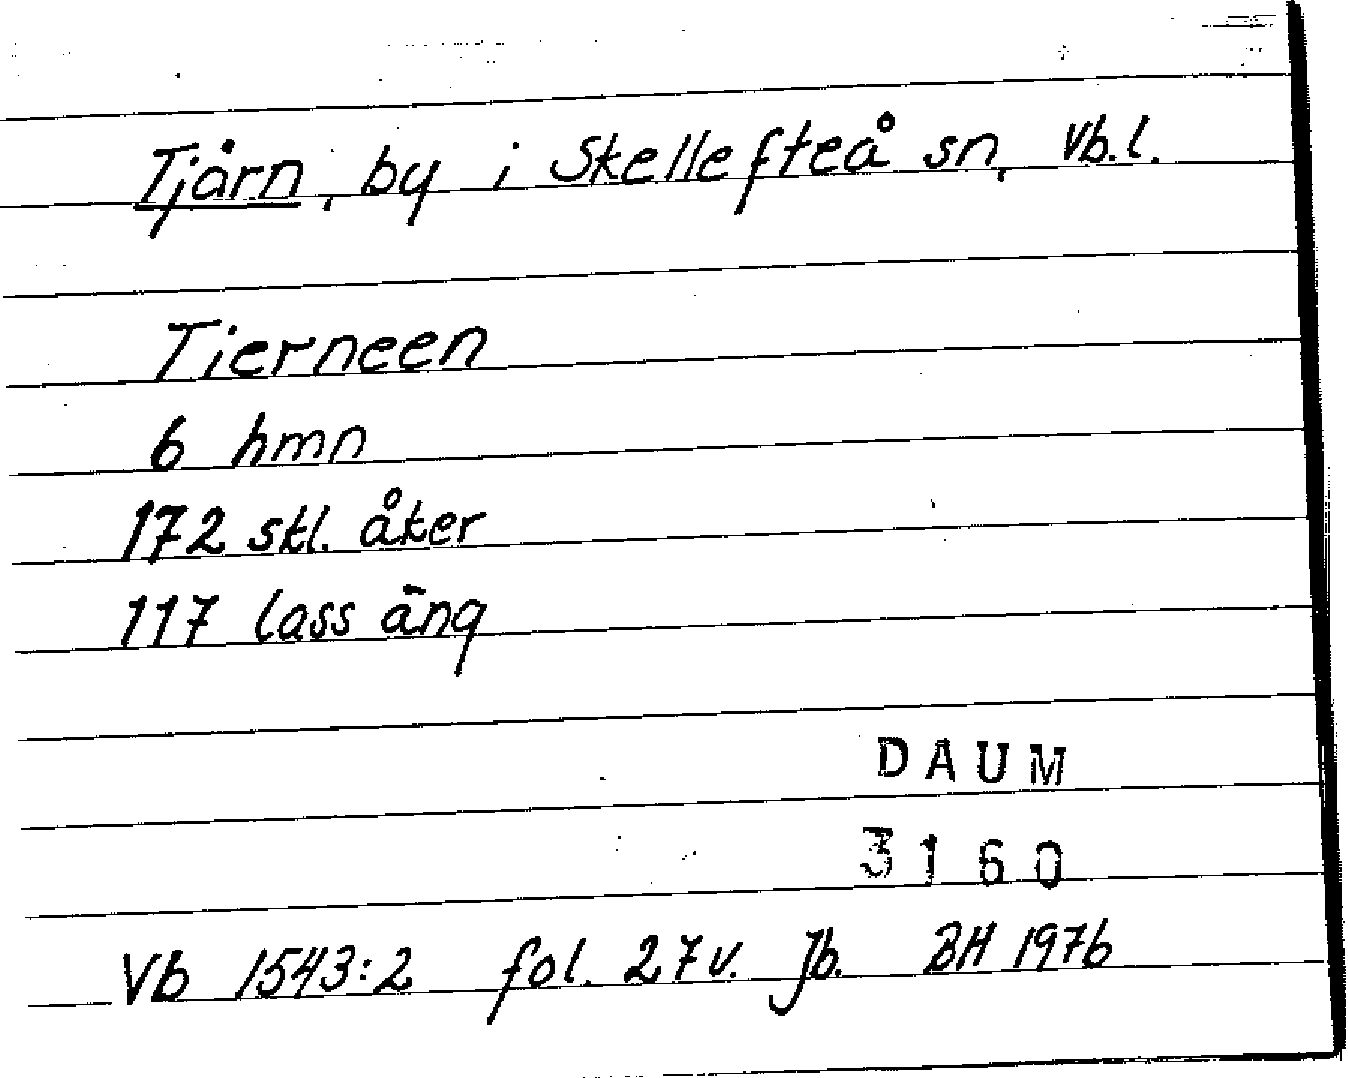 Tjärn, by i Skellefteå sn, Vb.l.
Tierneen
6 hmn
172 skl. åker
117 lass äng
DAUM
3160
Vb 1543:2 fol. 27v. Jb. BH 1976